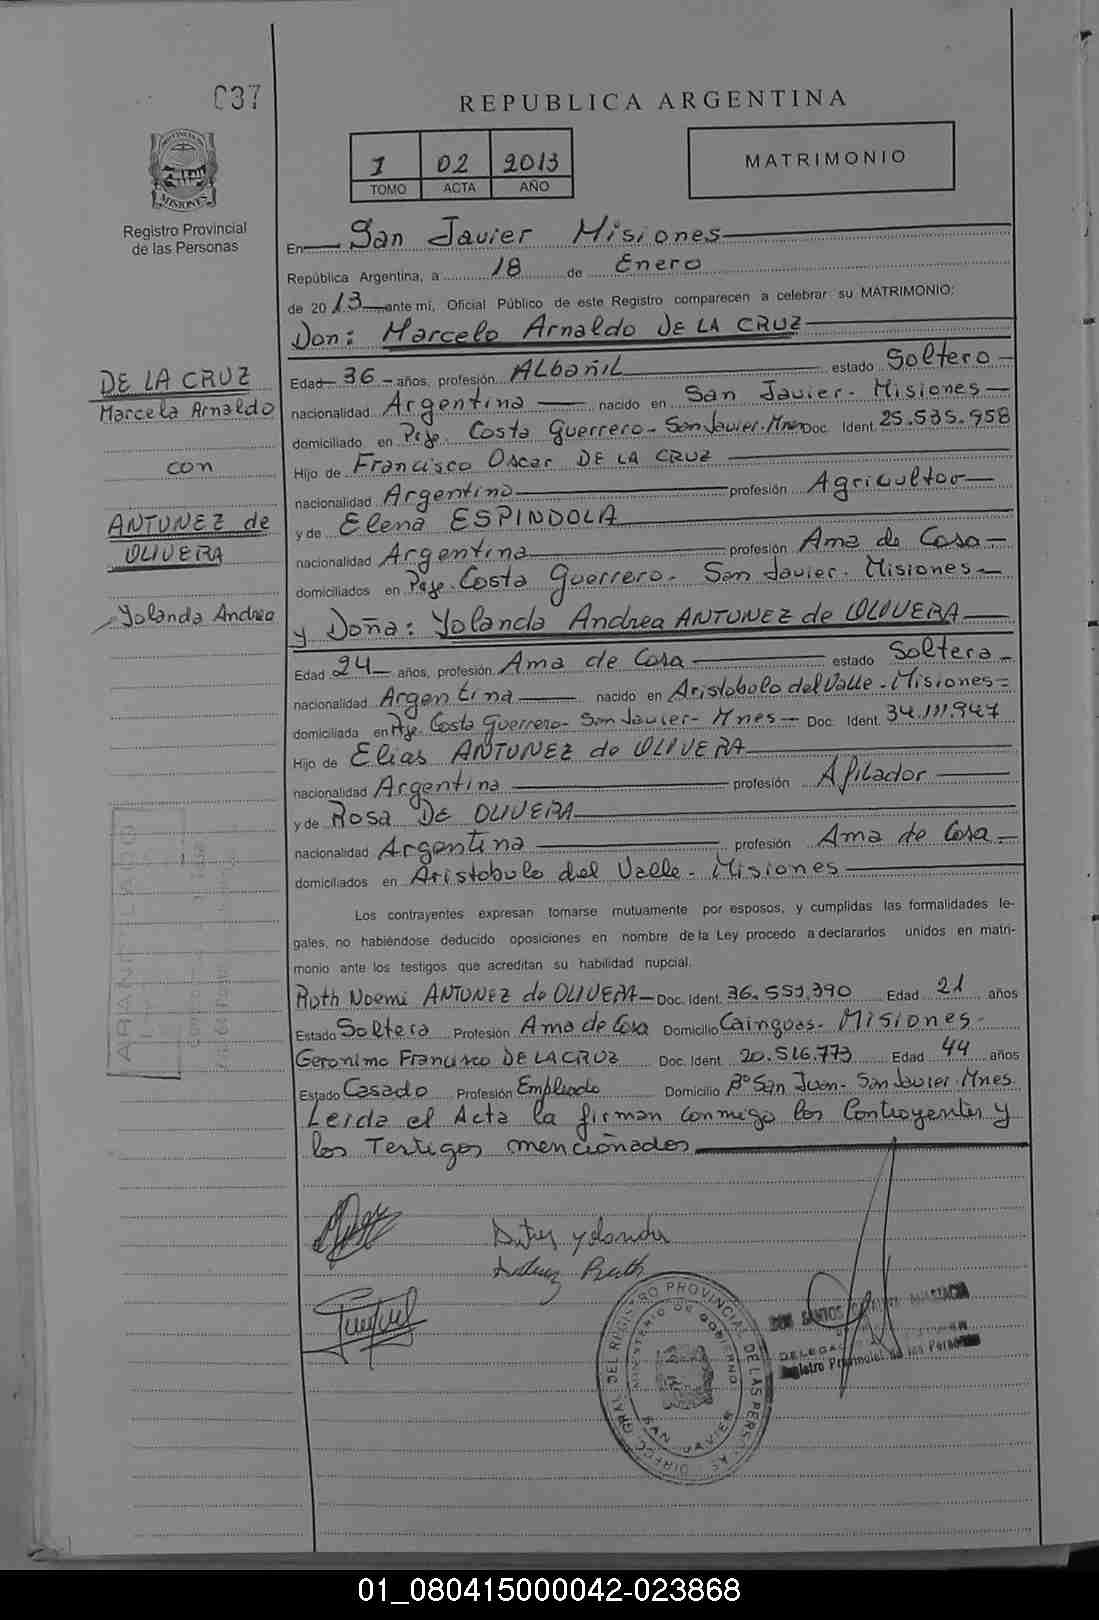 037
REPUBLICA ARGENTINA
1 02 2013
TOMO ACTA AÑO
MATRIMONIO
PROVINCIA DE
MISIONES
Registro Provincial
de las Personas
En San Javier Misiones
República Argentina, a 18 de Enero
de 2013 ante mi, Oficial Público de este Registro comparecen a celebrar su MATRIMONIO:
Don: Marcelo Arnaldo DE LA CRUZ
Edad 36 años, profesión ALbañiL estado Soltero
nacionalidad Argentina nacido en San Javier - Misiones
domiciliado en Pje. Costa Guerrero - San Javier. Mnes Doc. Ident. 25.535.958
Hijo de Francisco Oscar DE LA CRUZ
nacionalidad Argentina profesión Agricultor
y de Elena ESPINDOLA
nacionalidad Argentina profesión Ama de Casa
domiciliados en Paje. Costa Guerrero - San Javier - Misiones
y Doña: Yolanda Andrea ANTUNEZ de OLIVERA
Edad 24 años, profesión Ama de Casa estado Soltera
nacionalidad Argentina nacido en Aristobolo del Valle - Misiones
domiciliada en Pje. Costa Guerrero - San Javier - Mnes Doc. Ident. 34.111.947
Hijo de Elias ANTUNEZ de OLIVERA
nacionalidad Argentina profesión Afilador
y de Rosa DE OLIVERA
nacionalidad Argentina profesión Ama de Casa
domiciliados en Aristobulo del Valle - Misiones
Los contrayentes expresan tomarse mutuamente por esposos, y cumplidas las formalidades le-
gales, no habiéndose deducido oposiciones en nombre de la Ley procedo a declararlos unidos en matri-
monio ante los testigos que acreditan su habilidad nupcial.
Ruth Noemi ANTUNEZ de OLIVERA Doc. Ident. 36.559.390 Edad 21 años
Estado Soltera Profesión Ama de Casa Domicilio Cainguas - Misiones
Geronimo Francisco DE LA CRUZ Doc. Ident. 20.516.773 Edad 44 años
Estado Casado Profesión Empleado Domicilio Bº San Juan - San Javier. Mnes
Leida el Acta la firman conmigo los Contrayentes y
los Testigos mencionados
DE LA CRUZ
Marcelo Arnaldo
con
ANTUNEZ de
OLIVERA
Yolanda Andrea
Yolanda
Ruth
DIRECC. GRAL. DEL REGISTRO PROVINCIAL DE LAS PERSONAS
MINISTERIO DE GOBIERNO
SAN JAVIER
DOS SANTOS
DELEGA
Registro Provincial de las Personas
01_080415000042-023868